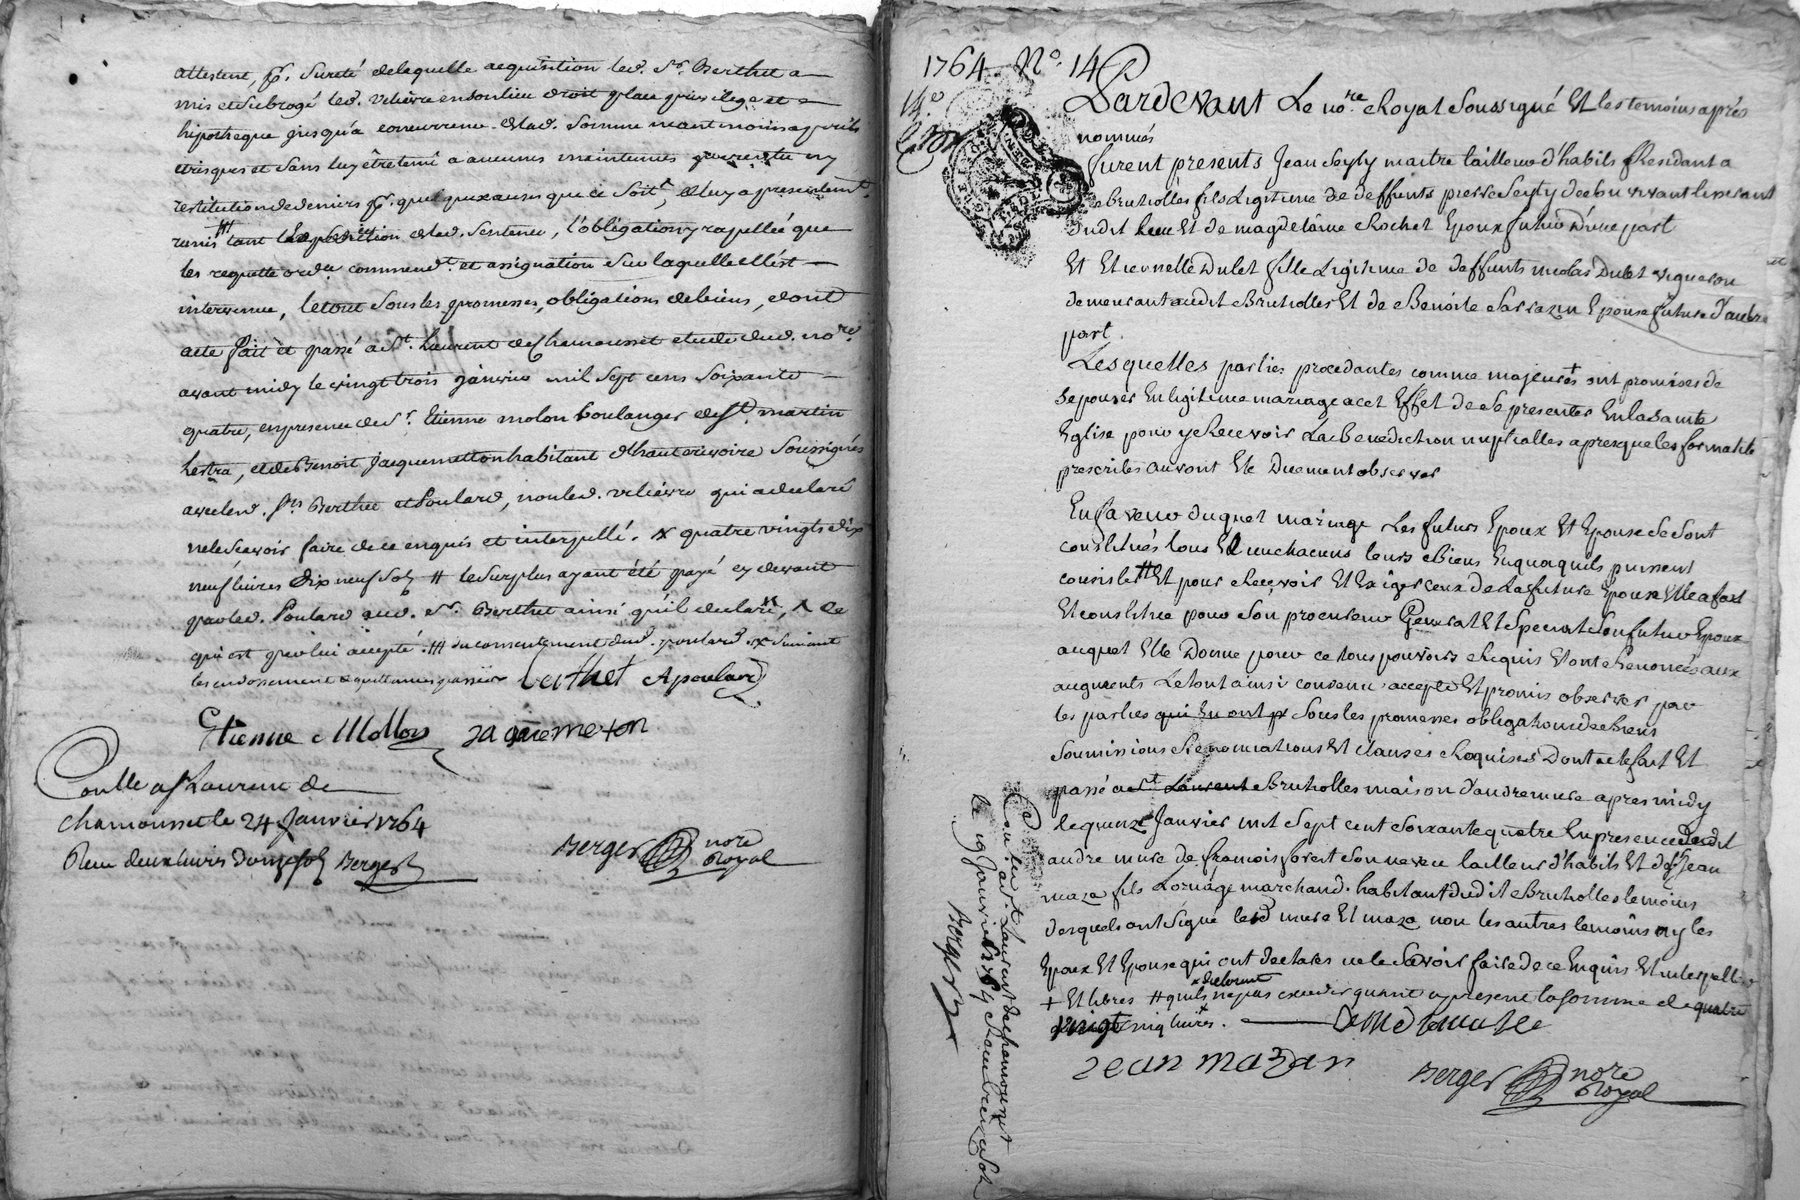 attestent, pr. sureté de laquelle acquisition led. Sr. Berthet a
mis et subrogé led. Veliévre en son lieu droit place privilege et
hipotheque jusqu'a concurrence de lad. somme neantmoins a perils
et risques et sans luy être tenu a aucunes maintenues garentie ny
restitution de deniers pr. quelquexause que ce soit, et luy a presentemt.
remis tant l'expedition de lad. sentence, l'obligation y rapellée que
les requette ordce. commendt. et assignation sur laquelle elle est
intervenue, le tout sous les promesses, obligations de biens, dont
acte fait et passé a St. Laurent de Chamousset etude dud. nore.
avant midy le vingt trois janvier mil sept cens soixante
quatre, en presence de Sr. Etienne molon boulanger de St. martin
Lestra, et de Benoit Jacquemetton habitant d'hauterivoire soussignés
avec led. Srs Berthet et Poulard, non led. veliévre qui a declaré
ne le sçavoir faire de ce enquis et interpellé. x quatre vingts dix
neuf livres dix neuf sols # le surplus ayant été payé cy devant
par led. Poulard aud. Sr. Berthet ainsi qu'il declare, x de
qui est par lui accepté. ### du consentement dud. poulard. x suivant
les endossement &
Berthet Apoulard
Etienne Mollon jaquemeton
Conlle a St Laurent de
chamousset le 24 Janvier 1764
Reçu deux livres douze sols Berger
Berger nore Royal
1764 No. 14
14.e
Pardevant Le nore. Royal Soussigné Et les temoins après
nommés
furent presents Jean Seyty maitre tailleur d'habits Residant a
Brutiolles fils Legitime de deffunts pierre Seyty de son vivant tisserant
dudit lieu Et de magdelaine Rochet Epoux futur D'une part
Et Etiennette Dulet fille Legitime de deffunts nicolas Dulet vigneron
demeurant audit Brutiolles Et de Benoite Sarrazin Epouse future D'autre
part.
Lesquelles parties procedantes comme majeures + ont promises de
se pouser En legitime mariage a cet Effet de se presenter En la sainte
Eglise pour y Recevoir La Benediction nuptialles apres que les formalités
prescrites auront Eté Duement observer
En faveur duquel mariage Les futurs Epoux Et Epouse se sont
constitués tous Et un chacuns leurs Biens En quoy quils puissent
consister # Et pour Recevoir Et Exiger ceux de La future Epouse Elle a fait
Et constitué pour son procureur General Et Special son futur Epoux
auquel Elle Donne pour ce tous pouvoirs Requis Et ont Renoncés aux
augments Le tout ainsi convenu accepté Et promis observer par
les parties qui En ont pr Sous les promesses obligations de biens
Soumissions Renonciations Et clauses Requises Dont acte fait Et
passé a St. Laurent Brutiolles maison d'andre mure apres midy
le quinze Janvier mil Sept cent Soixante quatre En presence dudit
andre mure de francois forest Son neveu tailleur d'habits Et de Sr Jean
maza fils Loruage marchand. habitant dudit Brutiolles temoins
desquels ont signé led mure Et maza non les autres temoins ny les
Epoux Et Epouse qui ont declarés ne le savoir faire de ce Enquis Et interpellés
+ Et libres # quils x declarent ne pas exceder quant a present la somme de quatre
vingt cinq livres.
andre mure
Jean mazar
Berger nore Royal
Conlle a St. Laurent de chamousset
le 19 Janvier 1764
Berger